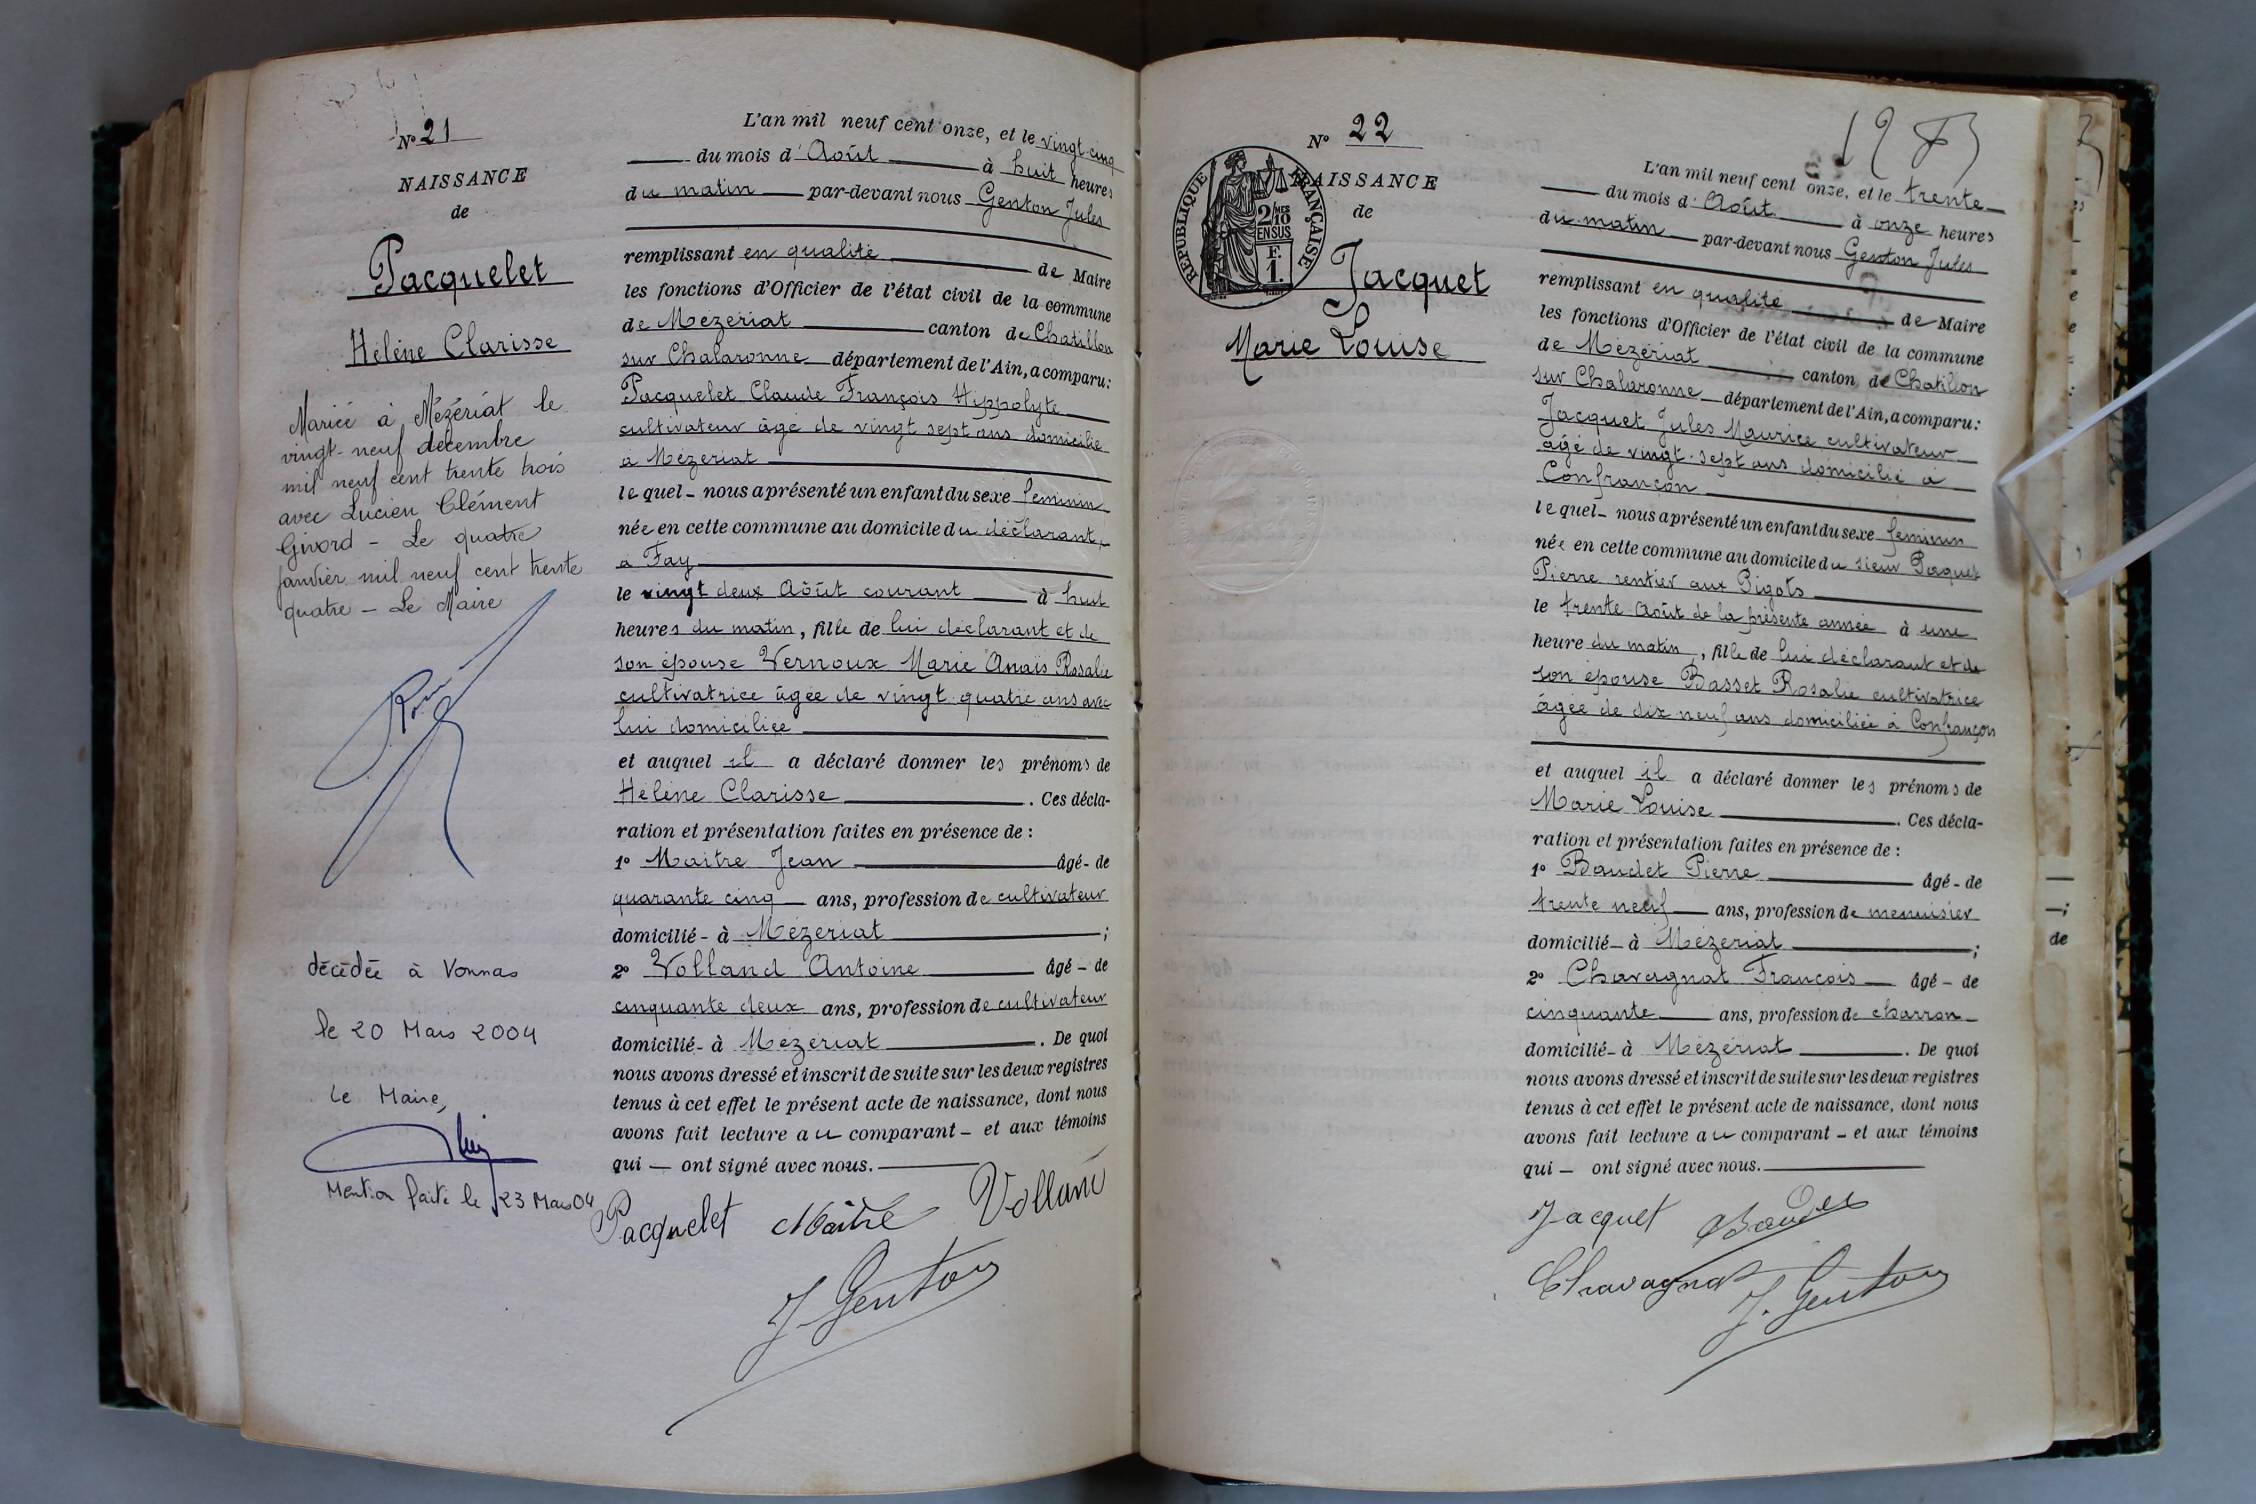 N° 21
NAISSANCE
de
Pacquelet
Hélène Clarisse
Mariée à Mézériat le
vingt-neuf décembre
mil neuf cent trente trois
avec Lucien Clément
Givord - Le quatre
janvier mil neuf cent trente
quatre - Le Maire
décédée à Vonnas
le 20 Mars 2004
Le Maire,
Mention faite le 23 Mars 04
L'an mil neuf cent onze, et le vingt-cinq
du mois d'Août à huit heures
du matin par-devant nous Genton Jules
remplissant en qualité de Maire
les fonctions d'Officier de l'état civil de la commune
de Mézériat canton de Chatillon
sur Chalaronne département de l'Ain, a comparu:
Pacquelet Claude François Hippolyte
cultivateur âgé de vingt sept ans domicilié
à Mézériat
lequel - nous a présenté un enfant du sexe féminin
née en cette commune au domicile du déclarant,
à Fay
le vingt deux Août courant à huit
heures du matin, fille de lui déclarant et de
son épouse Vernoux Marie Anaïs Rosalie
cultivatrice âgée de vingt quatre ans avec
lui domiciliée
et auquel il a déclaré donner les prénoms de
Hélène Clarisse . Ces décla-
ration et présentation faites en présence de :
1° Maitre Jean âgé - de
quarante cinq ans, profession de cultivateur
domicilié - à Mézériat ;
2° Volland Antoine âgé - de
cinquante deux ans, profession de cultivateur
domicilié - à Mézériat . De quoi
nous avons dressé et inscrit de suite sur les deux registres
tenus à cet effet le présent acte de naissance, dont nous
avons fait lecture au comparant - et aux témoins
qui - ont signé avec nous.
Pacquelet Maitre Volland
J. Genton
N° 22
NAISSANCE
de
RÉPUBLIQUE FRANÇAISE
2/10 MES
EN SUS
F.
1.
Jacquet
Marie Louise
L'an mil neuf cent onze, et le trente
du mois d'Août à onze heures
du matin par-devant nous Genton Jules
remplissant en qualité de Maire
les fonctions d'Officier de l'état civil de la commune
de Mézériat canton de Chatillon
sur Chalaronne département de l'Ain, a comparu:
Jacquet Jules Maurice cultivateur
âgé de vingt-sept ans domicilié à
Confrançon
lequel - nous a présenté un enfant du sexe féminin
née en cette commune au domicile du sieur Paquet
Pierre rentier aux Pigots
le trente Août de la présente année à une
heure du matin, fille de lui déclarant et de
son épouse Basset Rosalie cultivatrice
âgée de dix neuf ans domiciliée à Confrançon
et auquel il a déclaré donner les prénoms de
Marie Louise . Ces décla-
ration et présentation faites en présence de :
1° Baudet Pierre âgé - de
trente neuf ans, profession de menuisier
domicilié - à Mézériat ;
2° Chavagnat François âgé - de
cinquante ans, profession de charron
domicilié - à Mézériat . De quoi
nous avons dressé et inscrit de suite sur les deux registres
tenus à cet effet le présent acte de naissance, dont nous
avons fait lecture au comparant - et aux témoins
qui - ont signé avec nous.
Jacquet Baudet
Chavagnat J. Genton